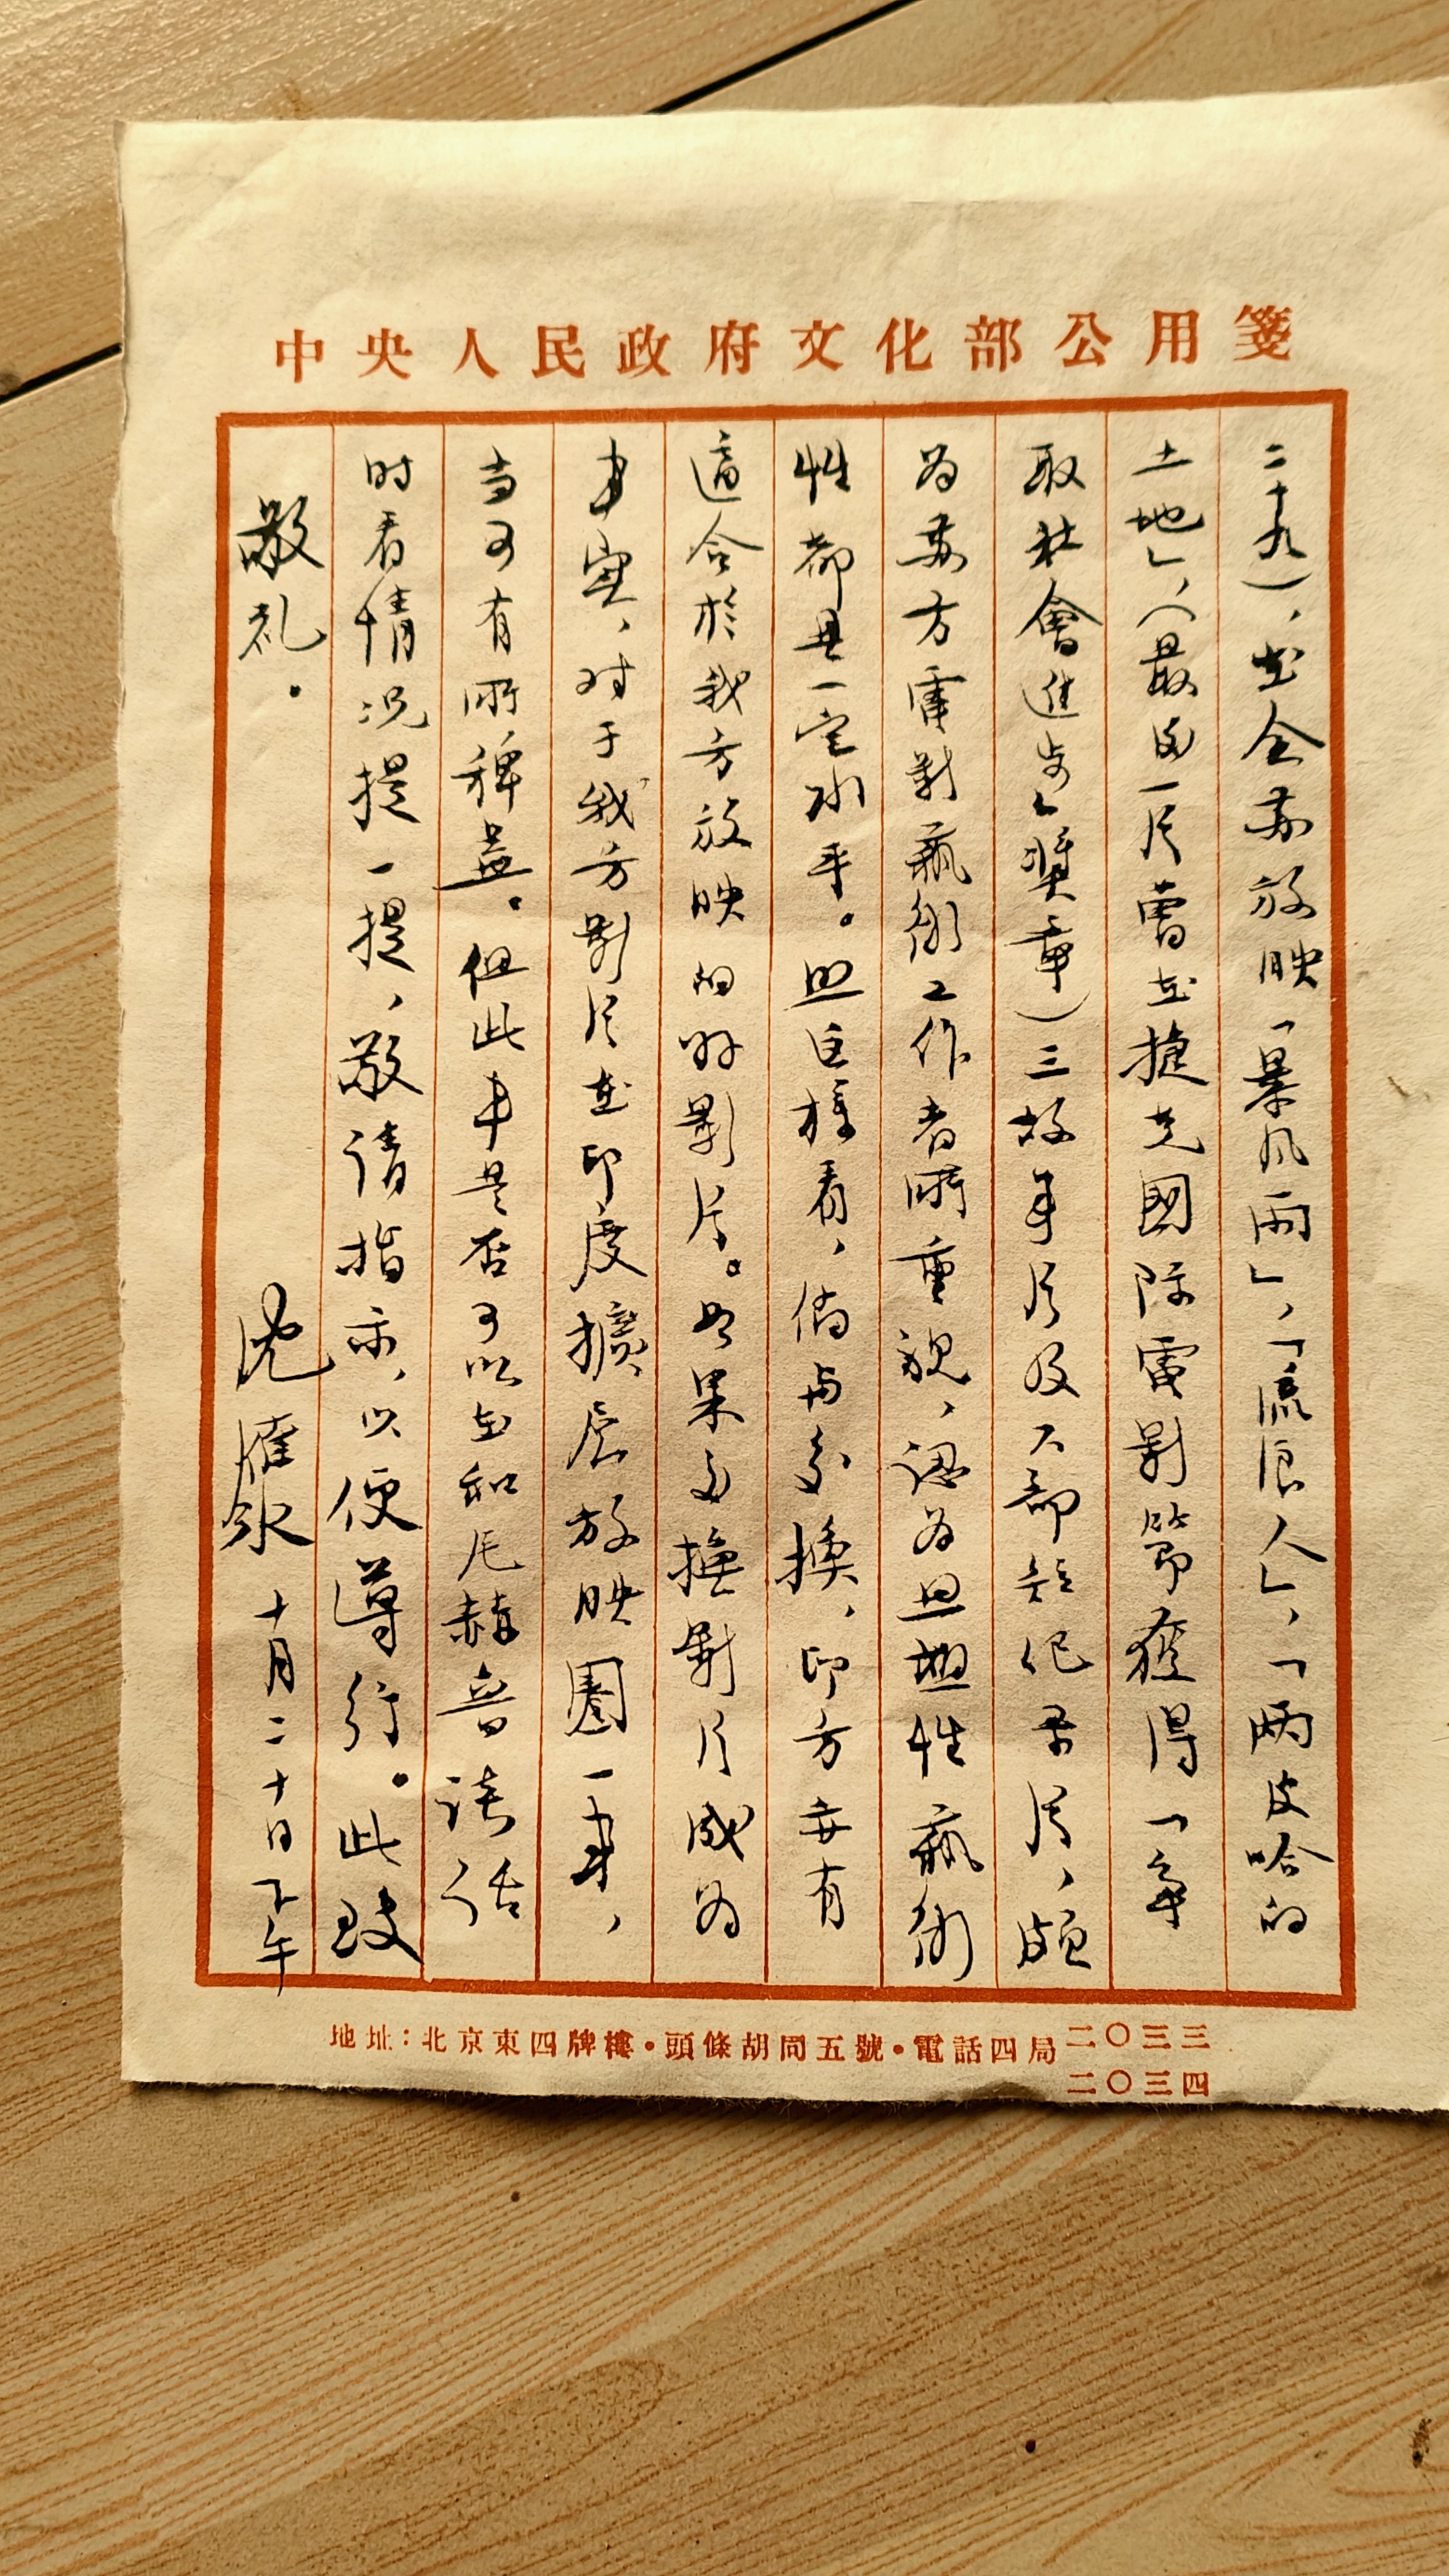 中央人民政府文化部公用箋
二十九），在全苏放映「暴风雨」，「流浪人」，「两皮哈的
土地」，（最后一片曾在捷克國际電影節獲得「争
取社會進步」奬章）三故事片及六部纪录片，頗
为苏方電影藝術工作者所重視，認为思想性藝術
性都具一定水平。照这样看，倘与交换，印方亦有
適合於我方放映的好影片。如果交換影片成为
事实，对于我方影片在印度擴展放映圈一事，
当可有所裨益。但此事是否可以在和尼赫魯談话
时看情况提一提，敬请指示，以便遵行。此致
敬礼。
沈雁冰 十月二十日下午
地址：北京東四牌樓·頭條胡同五號·電話四局二〇三三
二〇三四